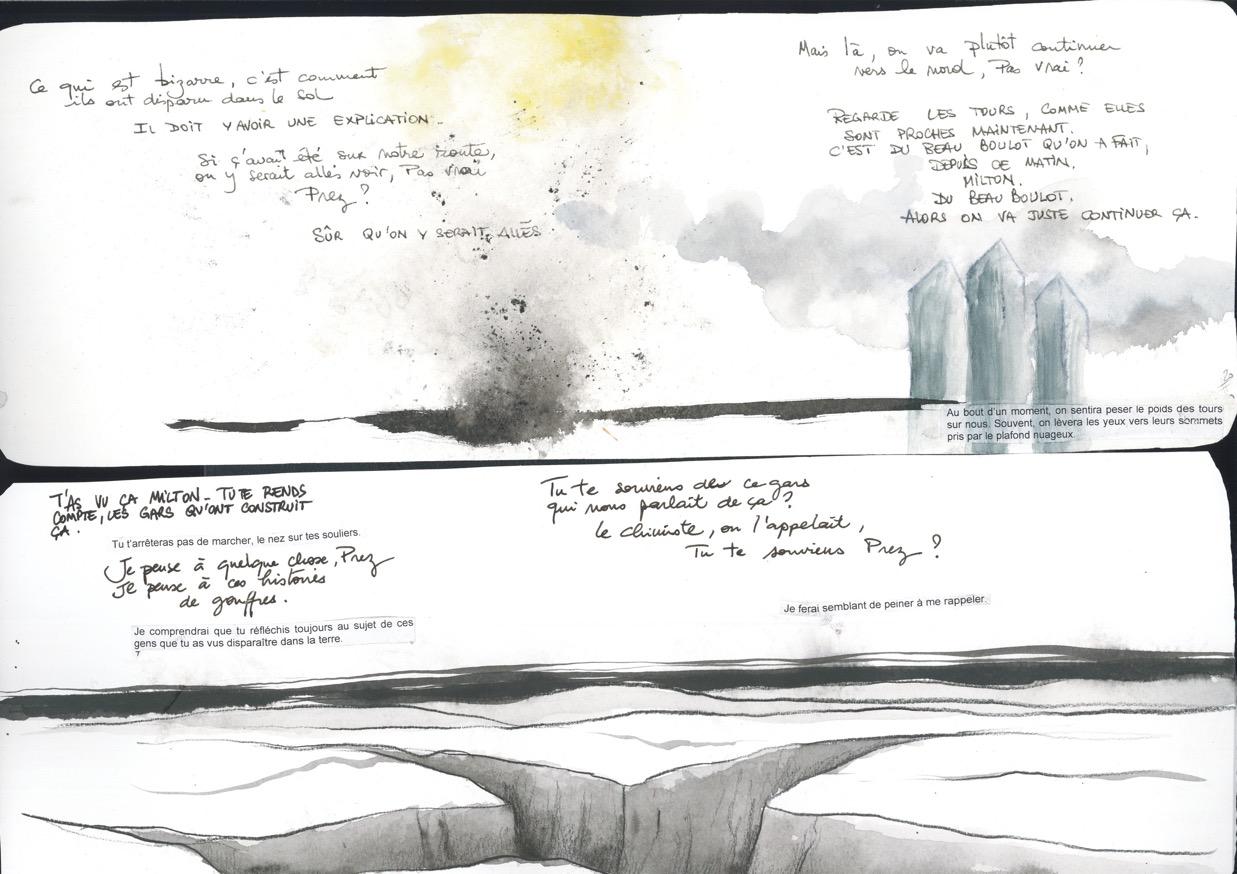 Ce qui est bizarre, c'est comment
ils ont disparu dans le sol
IL DOIT Y AVOIR UNE EXPLICATION.
Si ç'avait été sur notre route,
on y serait allés voir, Pas vrai
Prez ?
SÛR QU'ON Y SERAIT ALLÉS.
Mais là, on va plutôt continuer
vers le nord, Pas vrai ?
REGARDE LES TOURS, COMME ELLES
SONT PROCHES MAINTENANT.
C'EST DU BEAU BOULOT QU'ON A FAIT,
DEPUIS CE MATIN,
MILTON.
DU BEAU BOULOT.
ALORS ON VA JUSTE CONTINUER ÇA.
Au bout d'un moment, on sentira peser le poids des tours
sur nous. Souvent, on lèvera les yeux vers leurs sommets
pris par le plafond nuageux.
T'AS VU ÇA MILTON - TU TE RENDS
COMPTE, LES GARS QU'ONT CONSTRUIT
ÇA.
Tu t'arrêteras pas de marcher, le nez sur tes souliers.
Je pense à quelque chose, Prez
Je pense à ces histoires
de gouffres.
Je comprendrai que tu réfléchis toujours au sujet de ces
gens que tu as vus disparaître dans la terre.
7
Tu te souviens de ce gars
qui nous parlait de ça ?
Le chimiste, on l'appelait,
Tu te souviens Prez ?
Je ferai semblant de peiner à me rappeler.